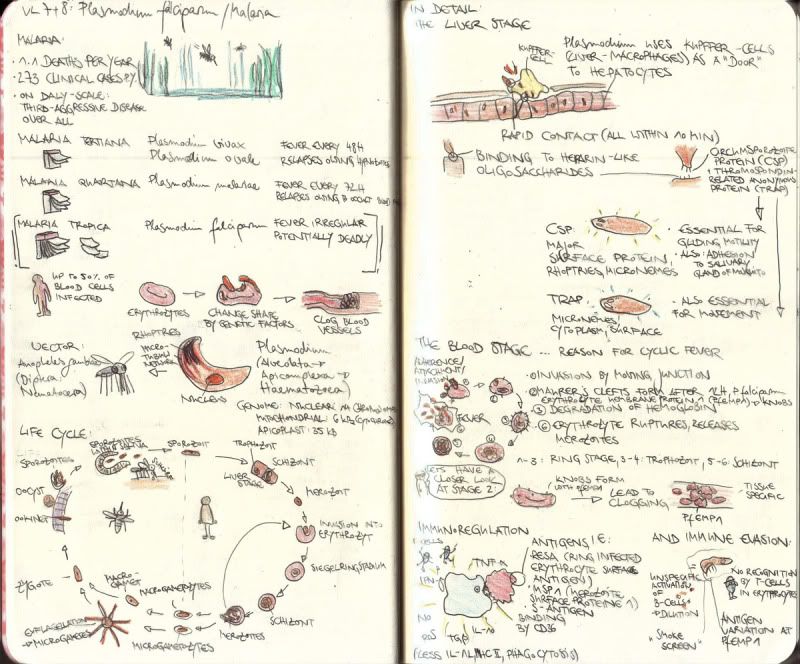 VL 7+8: Plasmodium falciparum / Malaria
MALARIA:
• 1.1 DEATHS PER YEAR
• 273 CLINICAL CASES PY
• ON DALY-SCALE:
THIRD-AGGRESSIVE DISEASE
OVER ALL
MALARIA TERTIANA Plasmodium vivax FEVER EVERY 48H
Plasmodium ovale RELAPSES OWING HYPNOZOITES
MALARIA QUARTANA Plasmodium malariae FEVER EVERY 72H
RELAPSES OWING TO OCCULT BLOOD
MALARIA TROPICA Plasmodium falciparum FEVER IRREGULAR
POTENTIALLY DEADLY
UP TO 50% OF
BLOOD CELLS
INFECTED
ERYTHROCYTES
CHANGE SHAPE
BY GENETIC FACTORS
CLOG BLOOD
VESSELS
VECTOR:
Anopheles gambiae
(Diptera
Nematocera)
RHOPTRIES
MICRO-
TUBULI
NUCLEUS
Plasmodium
(Alveolata →
Apicomplexa →
Haematozoea)
GENOME: NUCLEAR: 14 CHROMOSOMES
MITOCHONDRIAL: 6 kb
APICOPLAST: 35 kb
LIFE CYCLE:
SPOROZOITES
SPOROZOIT
TROPHOZOIT
SCHIZONT
LIVER
STAGE
MEROZOIT
INVASION INTO
ERYTHROZYT
SIEGELRINGSTADIUM
SCHIZONT
MEROZOITES
MICROGAMETOZYTES
MICROGAMETOZYTES
MACRO-
GAMET
EXFLAGELLATION
→ MICROGAMETES
ZYGOTE
OOKINET
OOCYST
SPOROZOITES
IN DETAIL:
THE LIVER STAGE
KUPFFER-
CELL
Plasmodium USES KUPFFER-CELLS
(LIVER-MACROPHAGES) AS A "DOOR"
TO HEPATOCYTES
RAPID CONTACT (ALL WITHIN 10 MIN)
BINDING TO HEPARIN-LIKE
OLIGOSACCHARIDES
CIRCUMSPOROZOITE
PROTEIN (CSP)
+ THROMBOSPONDIN-
RELATED ANONYMOUS
PROTEIN (TRAP)
CSP
MAJOR
SURFACE PROTEIN,
RHOPTRIES MICRONEMES
• ESSENTIAL FOR
GLIDING MOTILITY
• ALSO: ADHESION
TO SALIVARY
GLAND OF MOSQUITO
TRAP
MICRONEMES,
CYTOPLASM, SURFACE
• ALSO ESSENTIAL
FOR MOVEMENT
THE BLOOD STAGE ... REASON FOR CYCLIC FEVER
ADHERENCE/
ATTACHMENT/
INVASION
FEVER
① INVASION BY MOVING JUNCTION
② MAURER'S CLEFTS FORM AFTER 12H, P. falciparum
ERYTHROCYTE MEMBRANE PROTEIN 1 (PfEMP1) → KNOBS
③ DEGRADATION OF HEMOGLOBIN
⑥ ERYTHROCYTE RUPTURES, RELEASES
MEROZOITES
1-3: RING STAGE, 3-4: TROPHOZOIT, 5-6: SCHIZONT
LETS HAVE A
CLOSER LOOK
AT STAGE 2:
KNOBS FORM
WITH PfEMP1
LEAD TO
CLOGGING
PfEMP1
TISSUE
SPECIFIC
IMMUNOREGULATION
T CELLS
IFN
NO
TNF
IL-10
TGFβ
ANTIGENS IE:
RESA (RING INFECTED
ERYTHROCYTE SURFACE
ANTIGEN)
• MSP1 (MEROZOITE
SURFACE PROTEINE 1)
• S-ANTIGEN
BINDING
BY CD36
(LESS IL-12, MHC II, PHAGOCYTOSIS)
AND IMMUNE EVASION:
UNSPECIFIC
ACTIVATION
OF
B-CELLS →
DILUTION
"SMOKE
SCREEN"
NO RECOGNITION
BY T-CELLS
IN ERYTHROCYTE
ANTIGEN
VARIATION AT
PfEMP1